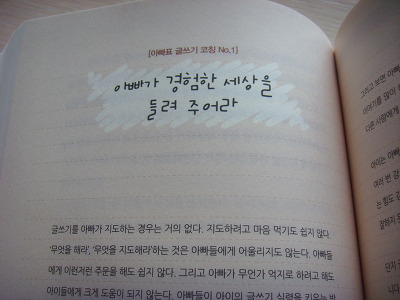 [아빠표 글쓰기 코칭 No.1]
아빠가 경험한 세상을
들려 주어라
글쓰기를 아빠가 지도하는 경우는 거의 없다. 지도하려고 마음 먹기도 쉽지 않다.
'무엇을 해라', '무엇을 지도해라'하는 것은 아빠들에게 어울리지도 않는다. 아빠들
에게 이런저런 주문을 해도 쉽지 않다. 그리고 아빠가 무언가 억지로 하려고 해도
아이들에게 크게 도움이 되지 않는다. 아빠들이 아이의 글쓰기 실력을 키우는
그리고 보면 아빠
이야기를 많이
다른 사람에게
아이는 아빠
여러 번
는 힘도
잘하지
단지
니다